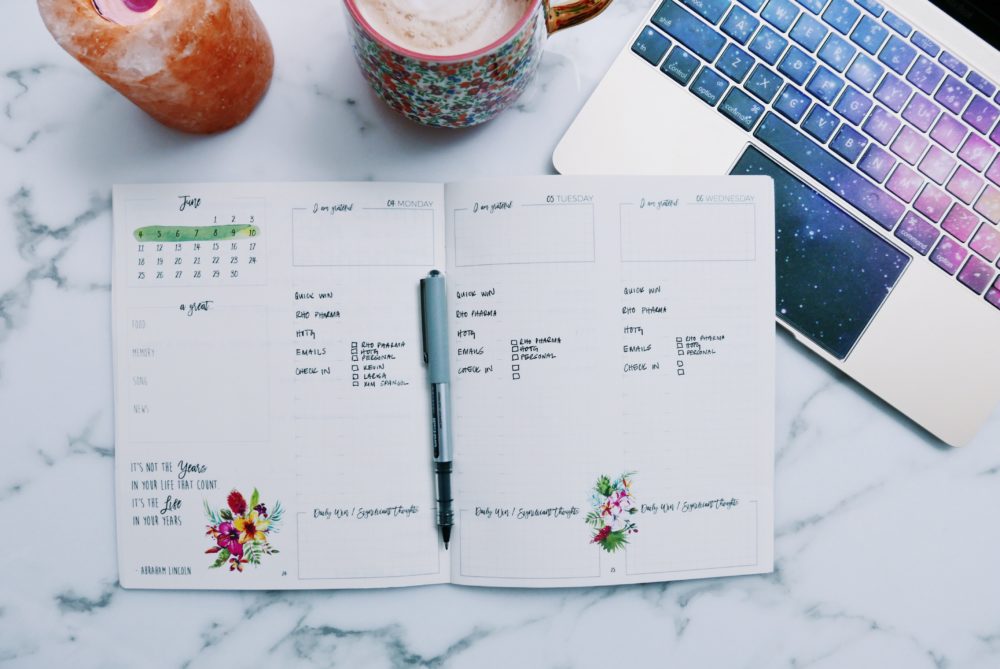 June
1 2 3
4 5 6 7 8 9 10
11 12 13 14 15 16 17
18 19 20 21 22 23 24
25 26 27 28 29 30
a great
FOOD
MEMORY
SONG
NEWS
IT'S NOT THE Years
IN YOUR LIFE THAT COUNT.
IT'S THE Life
IN YOUR YEARS
- ABRAHAM LINCOLN
24
I am grateful
04 MONDAY
QUICK WIN
RHO PHARMA
HOTG
EMAILS
RHO PHARMA
HOTG
PERSONAL
CHECK IN
KEVIN
LARISA
Daily Win / Significant thoughts
I am grateful
05 TUESDAY
QUICK WIN
RHO PHARMA
HOTG
EMAILS
RHO PHARMA
HOTG
PERSONAL
CHECK IN
Daily Win / Significant thoughts
25
I am grateful
06 WEDNESDAY
QUICK WIN
RHO PHARMA
HOTG
EMAILS
RHO PHARMA
HOTG
PERSONAL
CHECK IN
Daily Win / Significant thoughts
shift
Q W E R T Y U I O P
A S D F G H J K L
Z X C V B N M
control option command
command option